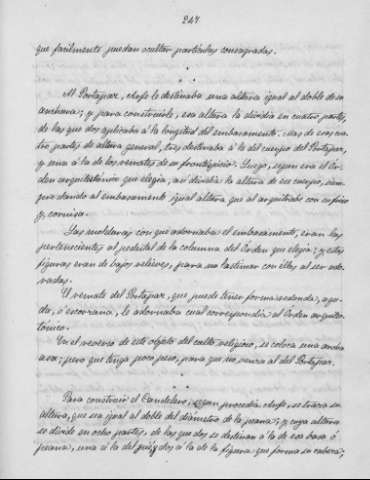 247
que facilmente puedan ocultar partículas consagradas.
Al Portapaz, Arfe le destinaba una altura igual al doble de su
anchura; y para construirle, esa altura la dividía en cuatro partes,
de las que dos aplicaba á la longitud del embasamento. Mas de esas cua
tro partes de altura general, tres destinaba á la del cuerpo del Portapaz,
y una á la de los remates de su frontispicio. Luego, segun era el Or
den arquitectónico que elegía, así dividía la altura de ese cuerpo, siem
pre dando al embasamento igual altura que al arquitrabe con su friso
y cornisa.
Las molduras con que adornaba el embasamento, eran las
pertenecientes al pedestal de la columna del Orden que elegía; y estas
figuras eran de bajos relieves, para no lastimar con éllas al ser ado
radas.
El remate del Portapaz, que puede tener forma redonda, agu
da, ó escarzana, le adornaba cual correspondía al Orden arquitec
tónico.
En el reverso de este objeto del culto religioso, se coloca una ancha
asa; pero que tenga poco peso, para que no venza al del Portapaz.
Para construir el Candelero, segun procedía Arfe, se traza su
altura, que sea igual al doble del diámetro de la peana; y cuya altura
se divide en ocho partes, de las que dos se destinan á la de esa basa ó
peana, una á la del pié, y dos á la de la figura que forma su cabeza;